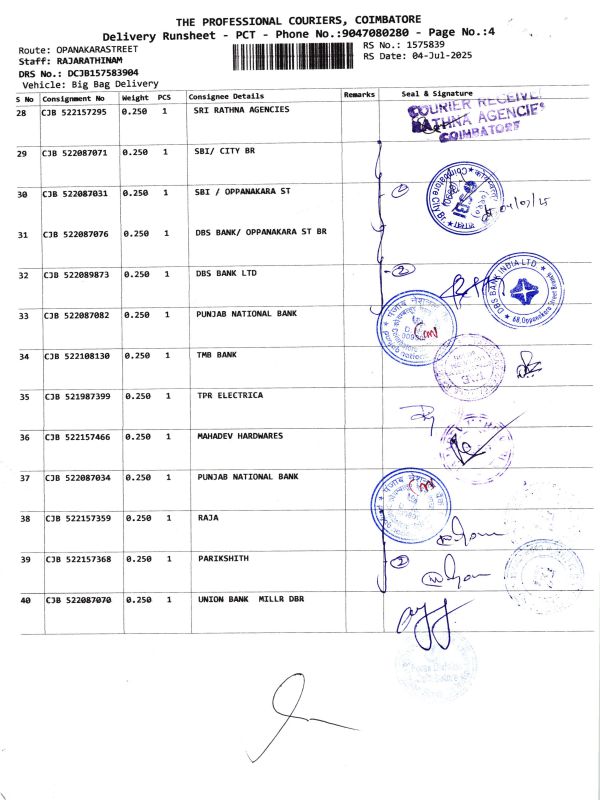 THE PROFESSIONAL COURIERS, COIMBATORE
Delivery Runsheet - PCT - Phone No.:9047080280 - Page No.:4
Route: OPANAKARASTREET
RS No.: 1575839
Staff: RAJARATHINAM
RS Date: 04-Jul-2025
DRS No.: DCJB157583904
Vehicle: Big Bag Delivery
S No Consignment No Weight PCS Consignee Details Remarks Seal & Signature
28 CJB 522157295 0.250 1 SRI RATHNA AGENCIES
COURIER RECEIVE
RATHNA AGENCIES
COIMBATORE
29 CJB 522087071 0.250 1 SBI/ CITY BR
30 CJB 522087031 0.250 1 SBI / OPPANAKARA ST
Coimbatore City Br.
04/07/25
31 CJB 522087076 0.250 1 DBS BANK/ OPPANAKARA ST BR
32 CJB 522089873 0.250 1 DBS BANK LTD
2
DBS BANK INDIA LTD
68, Oppanakara Street Branch
33 CJB 522087082 0.250 1 PUNJAB NATIONAL BANK
34 CJB 522108130 0.250 1 TMB BANK
35 CJB 521987399 0.250 1 TPR ELECTRICA
36 CJB 522157466 0.250 1 MAHADEV HARDWARES
37 CJB 522087034 0.250 1 PUNJAB NATIONAL BANK
38 CJB 522157359 0.250 1 RAJA
39 CJB 522157368 0.250 1 PARIKSHITH
2
40 CJB 522087070 0.250 1 UNION BANK MILLR DBR